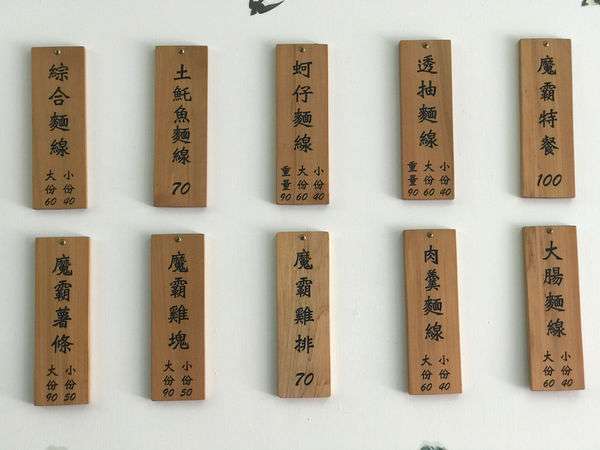 綜合麵線
大份60 小份40
土魠魚麵線
70
蚵仔麵線
重量90 大份60 小份40
透抽麵線
重量90 大份60 小份40
魔霸特餐
100
魔霸薯條
大份90 小份50
魔霸雞塊
大份90 小份50
魔霸雞排
70
肉羹麵線
大份60 小份40
大腸麵線
大份60 小份40